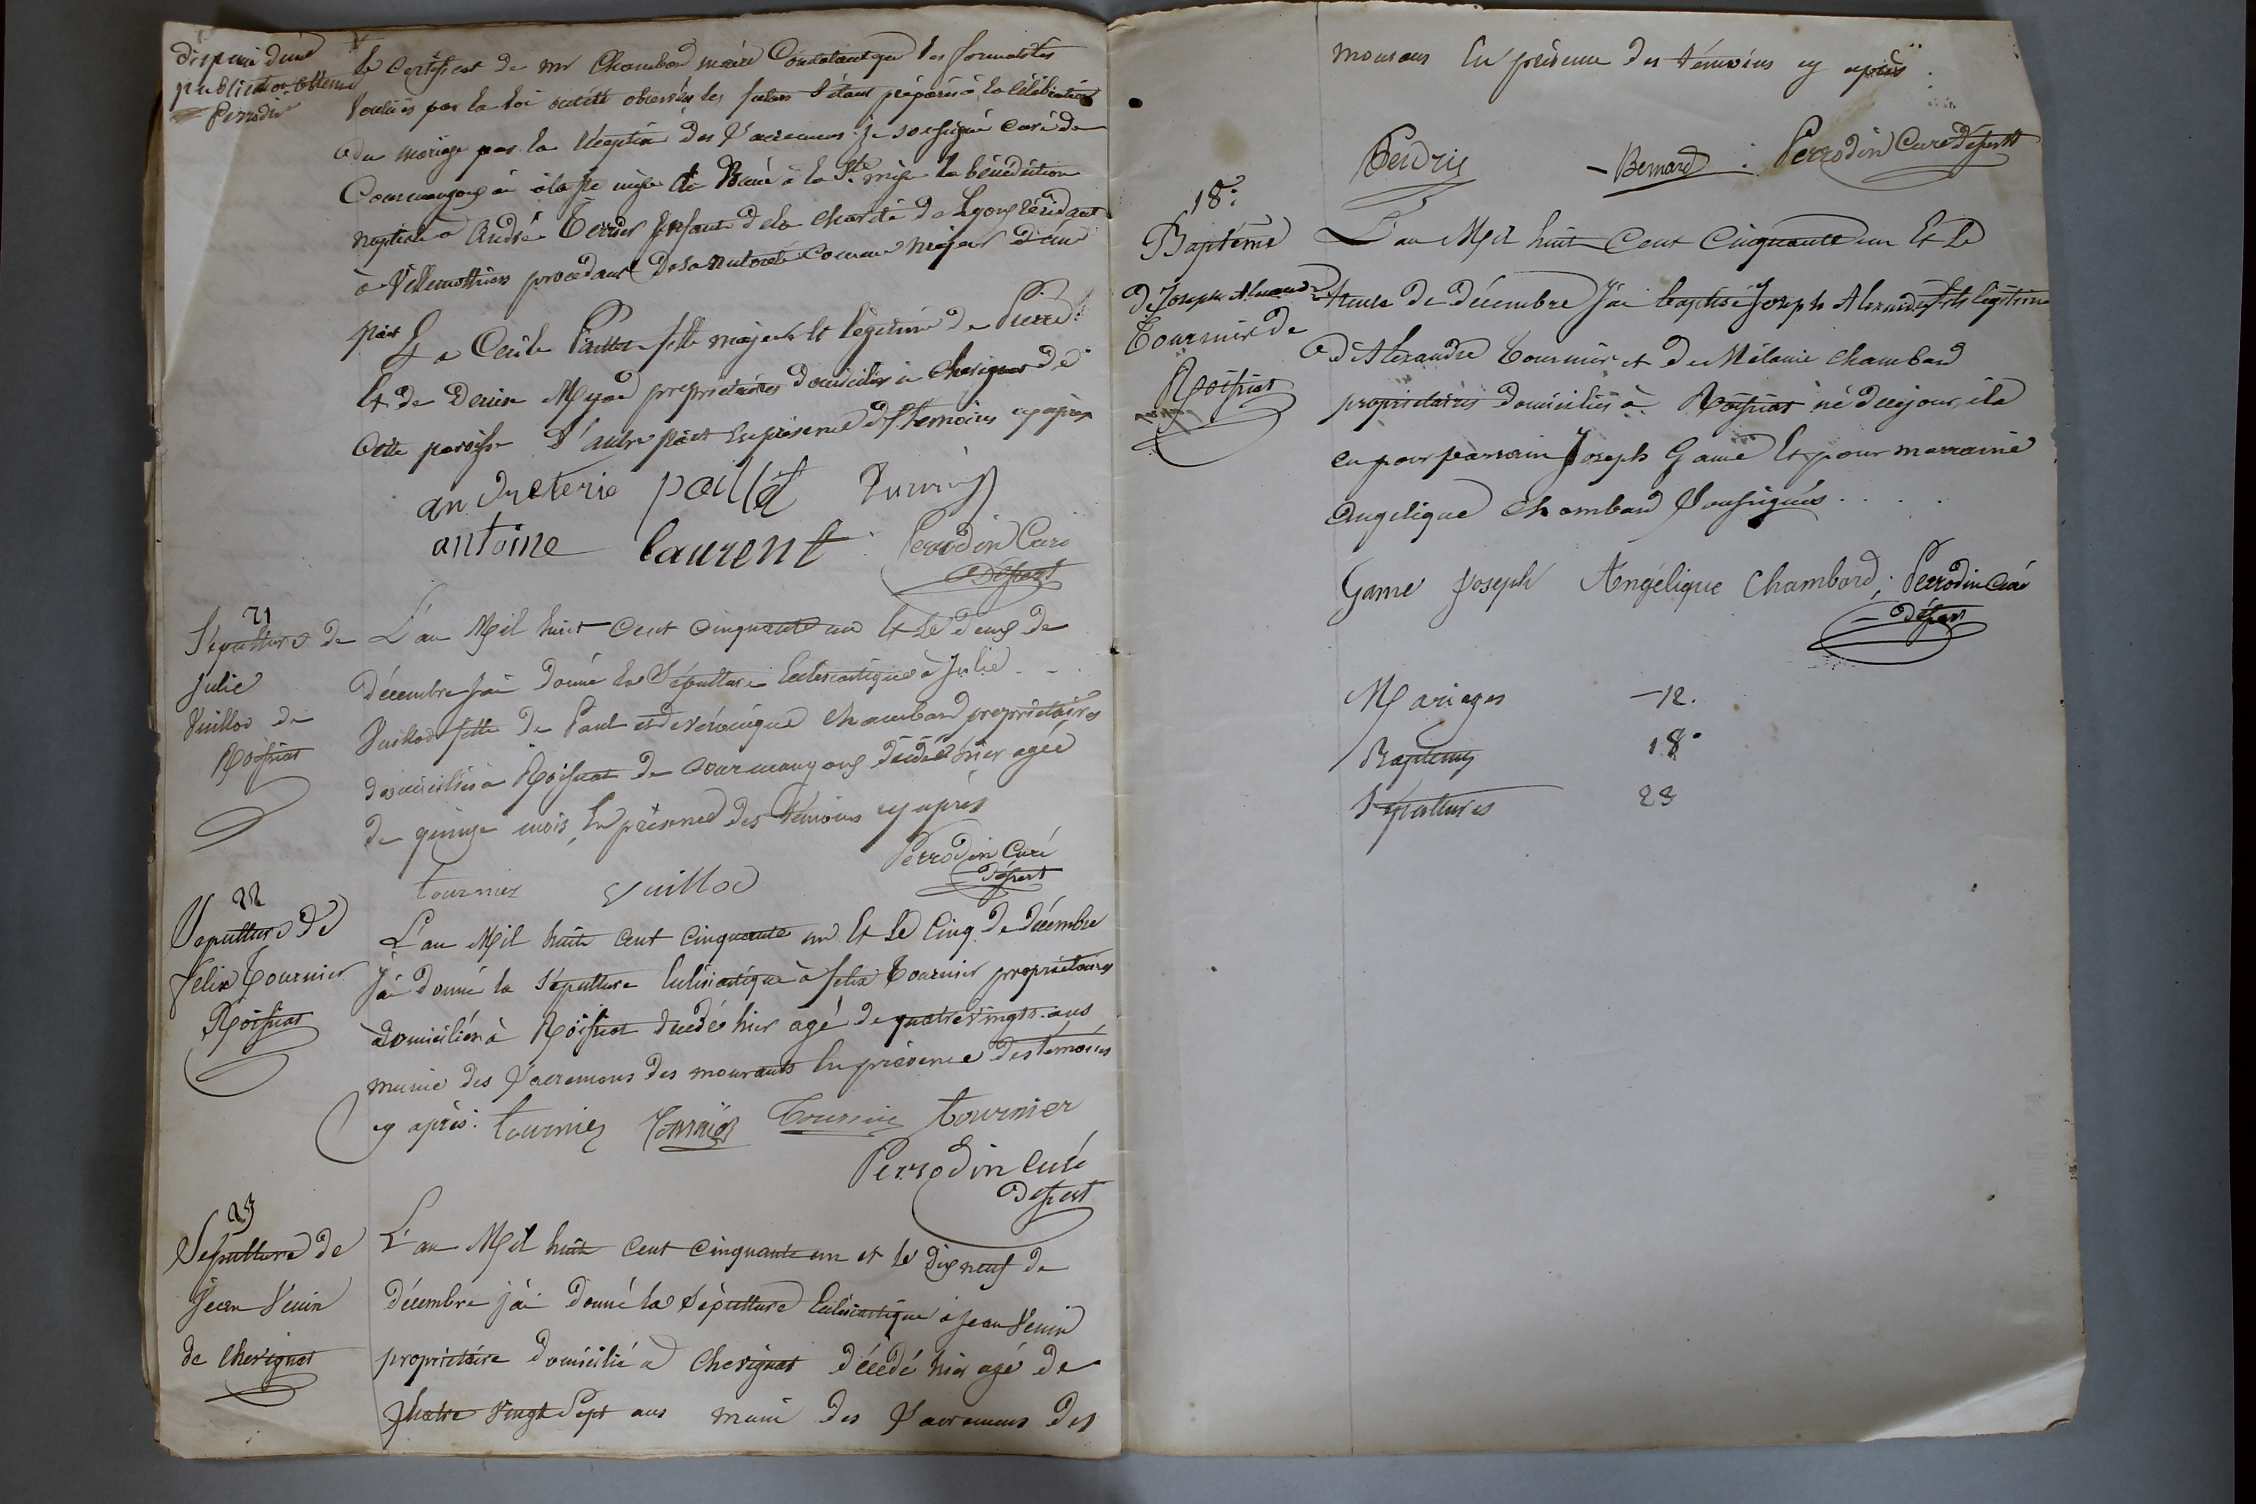 dispense d'une
publication obtenue
Perrodin
le Certificat de mr Chambard maire Constatant que les formalités
voulues par la loi ont été observées les futurs s'étant préparés à la célébration
du mariage par la réception des Sacremens je soussigné curé de
Courmangoux ai donné à la Ste messe la bénédiction
nuptiale à André Terrier Enfant de la charité de Lyon résidant
à Villemotier procédant de son autorité comme majeur d'une
part Et à Cécile Paillet fille majeure et légitime de Pierre
Et de Denise Myard propriétaires domiciliés à Chevignat de
cette paroisse d'autre part En présence des témoins cy après
andre terie paillet
antoine laurent Perrodin Curé
Désert
21
Sépulture de
Julie
Vuillod de
Roissiat
L'an Mil huit cent cinquante un Et le deux de
décembre j'ai donné la Sépulture Eclésiastique à Julie
Vuillod fille de Paul et de Véronique Chambard propriétaires
domiciliés à Roissiat de Courmangoux décédée hier agée
de quinze mois, En présence des témoins cy après
tournier vuillod Perrodin Curé
Désert
22
Sépulture de
félix Tournier
Roissiat
L'an Mil huit cent cinquante un Et le Cinq de décembre
j'ai donné la sépulture Eclésiastique à félix Tournier propriétaire
domicilié à Roissiat décédé hier agé de quatre vingts ans
munie des Sacremens des mourants En présence des témoins
cy après: tournier tournier tournier
Perrodin Curé
Désert
23
Sépulture de
Jean Venin
de Chevignat
L'an Mil huit cent cinquante un et le dix neuf de
décembre j'ai donné la Sépulture Eclésiastique à Jean Venin
propriétaire domicilié à Chevignat décédé hier agé de
quatre vingt Sept ans muni des Sacremens des
mourans En présence des témoins cy après
Bernard Perrodin Curé Désert
18:
Baptême
de Joseph Alexandre
Tournier de
Roissiat
L'an Mil huit Cent Cinquante un Et le
trente de décembre j'ai baptisé Joseph Alexandre fils légitime
d'Alexandre Tournier et de Mélanie Chambard
propriétaires domiciliés à Roissiat né de ce jour, il a
eu pour parrain Joseph Game Et pour marraine
Angélique Chambard Soussignés
Game Joseph Angélique Chambard; Perrodin Curé
Désert
Mariages - 12.
Baptemes 18.
Sépultures 23